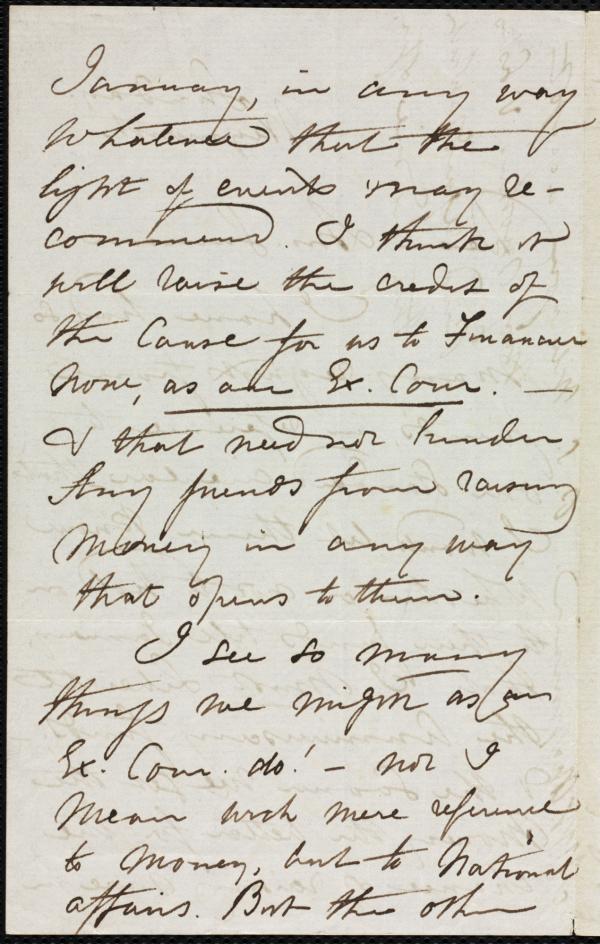 January, in any way
whatever that the
light of events may re-
commend. I think it
will raise the credit of
the Cause for us to Financier
none, as an Ex. Com. —
& that need not hinder
Any friends from raising
money in any way
that opens to them.
I see so many
things we might as an
Ex. Com. do! — not I
mean with mere reference
to money, but to National
affairs. But the other